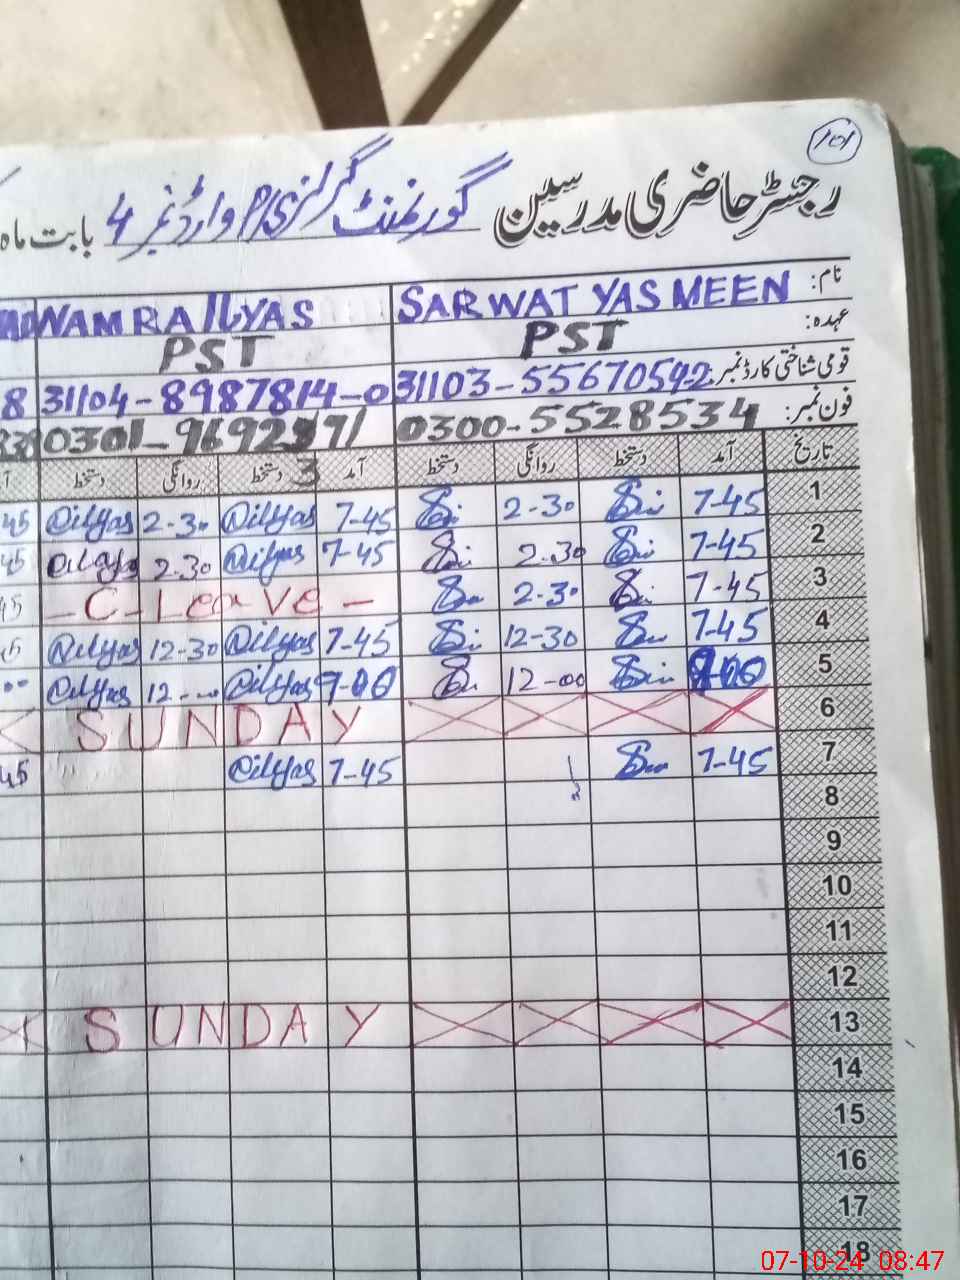 101
رجسٹر حاضری مدرسین گورنمنٹ گرلز وارڈ نمبر 4 بابت ماہ
نام: SARWAT YASMEEN NAMRA ILYAS
عہدہ: PST PST
قومی شناختی کارڈ نمبر: 31103-55670592 31104-8987814-0 8
فون نمبر: 0300-5528534
تاریخ آمد دستخط روانگی دستخط آمد دستخط روانگی دستخط
1 7-45 2-30 7-45 Oilyas 2-30 Oilyas 45
2 7-45 2.30 7-45 Oilyas 2.30 Oilyas 45
3 7-45 2-30 - C - Leave - 45
4 7-45 12-30 7-45 Oilyas 12-30 Oilyas
5 9-00 12-00 9-00 Oilyas 12-00 Oilyas
6 SUNDAY
7 7-45 7-45 Oilyas 45
8
9
10
11
12
13 SUNDAY
14
15
16
17
18
07-10-24 08:47